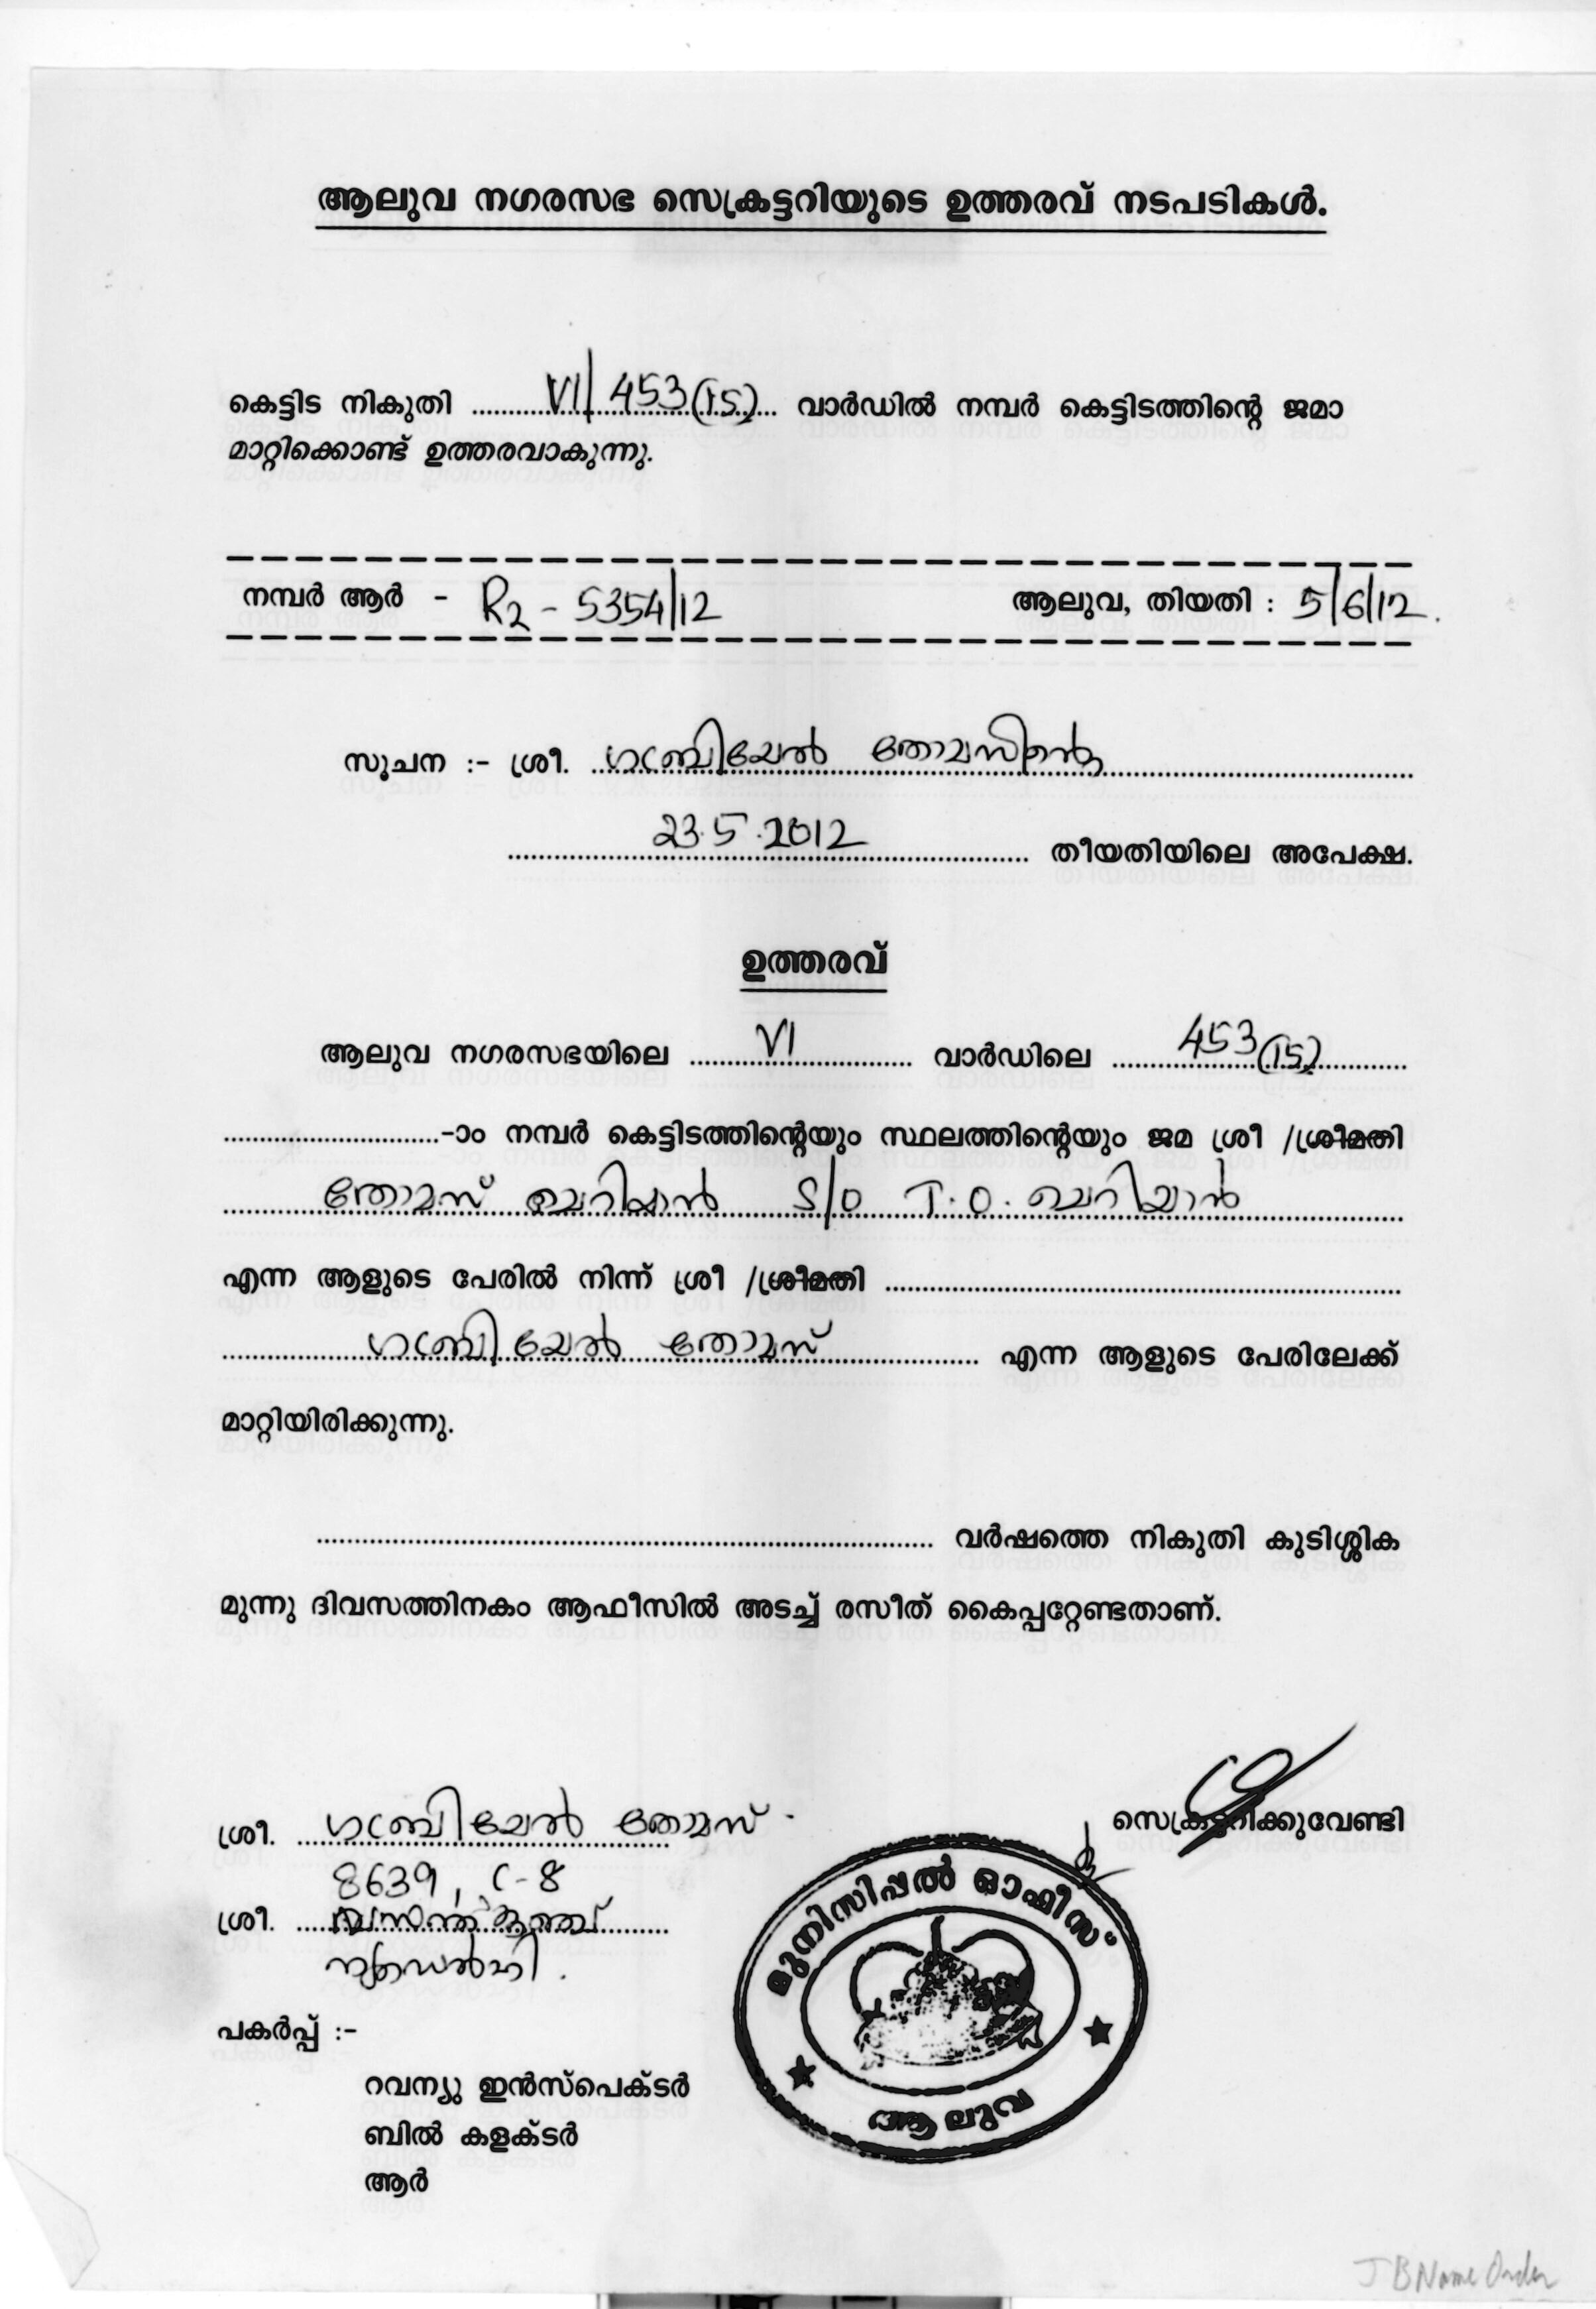 ആലുവ നഗരസഭ സെക്രട്ടറിയുടെ ഉത്തരവ് നടപടികൾ.
കെട്ടിട നികുതി ............ VI/453(15) ... വാർഡിൽ നമ്പർ കെട്ടിടത്തിന്റെ ജമാ
മാറ്റിക്കൊണ്ട് ഉത്തരവാകുന്നു.
നമ്പർ ആർ - R2 - 5354/12 ആലുവ, തിയതി : 5/6/12.
സൂചന :- ശ്രീ. ഗബ്രിയേൽ തോമസിന്റെ
23.5.2012 തീയതിയിലെ അപേക്ഷ.
ഉത്തരവ്
ആലുവ നഗരസഭയിലെ VI വാർഡിലെ 453(15)
-ാം നമ്പർ കെട്ടിടത്തിന്റെയും സ്ഥലത്തിന്റെയും ജമ ശ്രീ /ശ്രീമതി
തോമസ് ചെറിയാൻ S/O T.O. ചെറിയാൻ
എന്ന ആളുടെ പേരിൽ നിന്ന് ശ്രീ /ശ്രീമതി
ഗബ്രിയേൽ തോമസ് എന്ന ആളുടെ പേരിലേക്ക്
മാറ്റിയിരിക്കുന്നു.
വർഷത്തെ നികുതി കുടിശ്ശിക
മുന്നു ദിവസത്തിനകം ആഫീസിൽ അടച്ച് രസീത് കൈപ്പറ്റേണ്ടതാണ്.
സെക്രട്ടറിക്കുവേണ്ടി
ശ്രീ. ഗബ്രിയേൽ തോമസ്
8639, C-8
ശ്രീ. വസന്ത് കുഞ്ച്
ന്യൂഡെൽഹി.
മുനിസിപ്പൽ ഓഫീസ്
ആലുവ
പകർപ്പ് :-
റവന്യു ഇൻസ്പെക്ടർ
ബിൽ കളക്ടർ
ആർ
J B Name Order